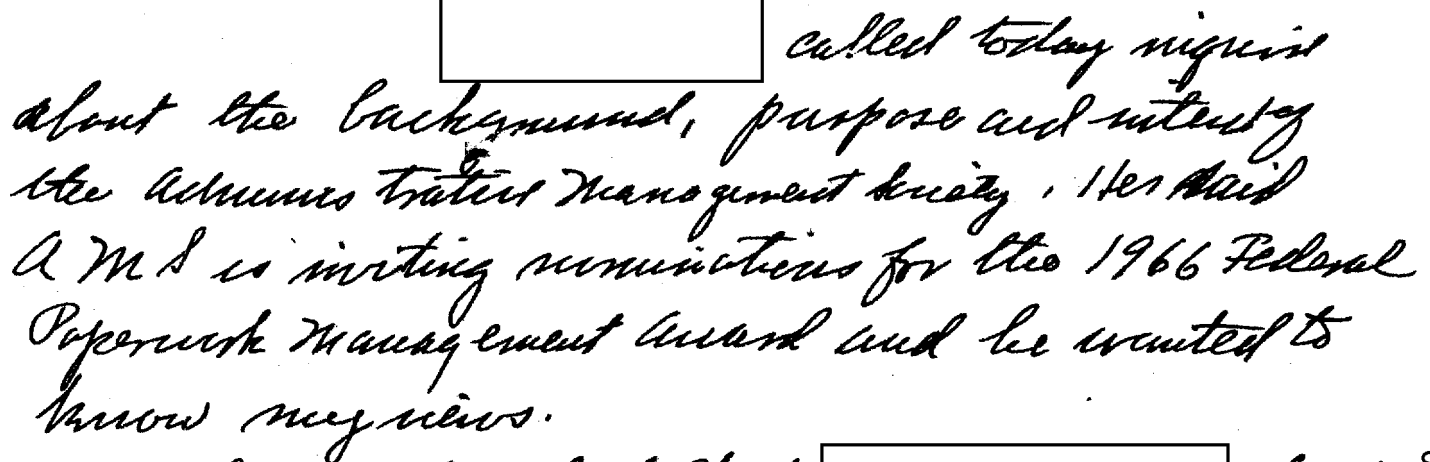 called today inquire
about the background, purpose and intent of
the Administrative Management Society. He said
AMS is inviting nominations for the 1966 Federal
Paperwork Management Award and he wanted to
know my views.